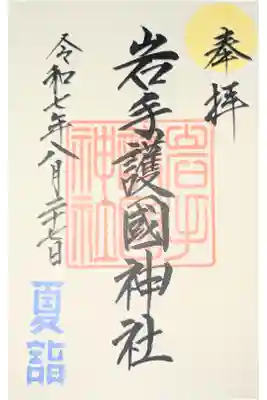 奉拝
岩手護國神社
令和七年八月二十七日
夏詣
岩手
神社